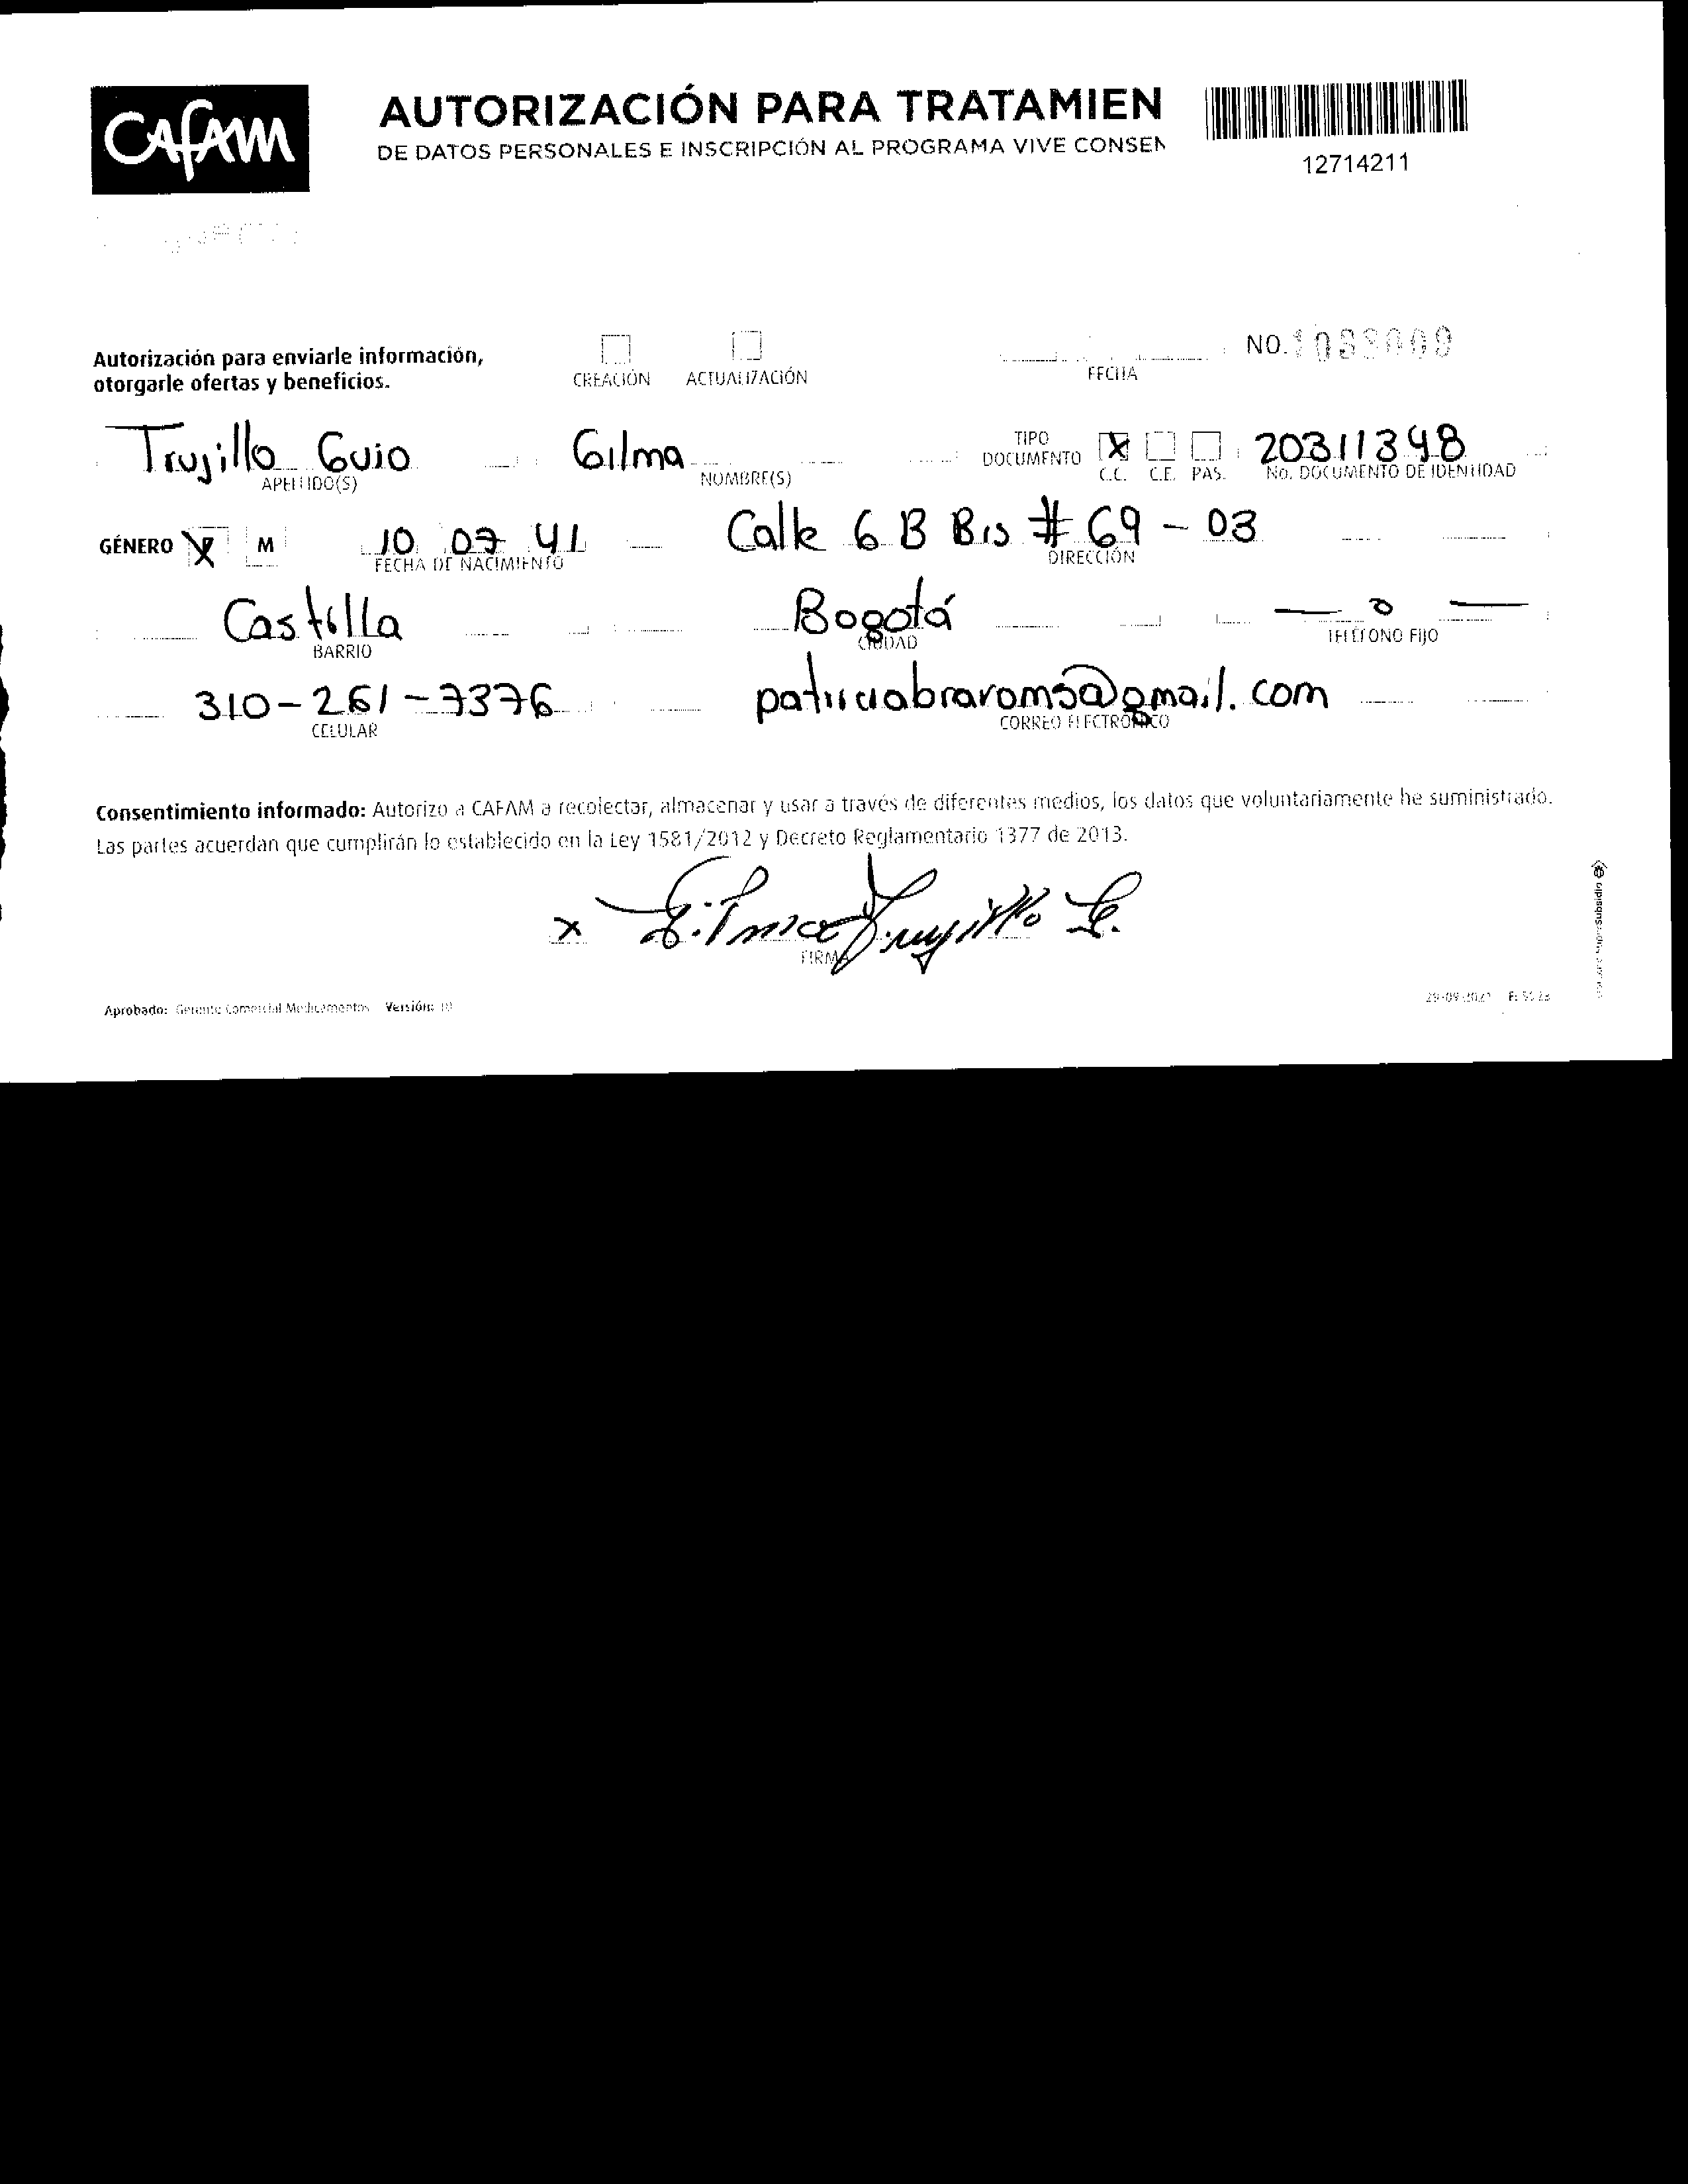 CAFAM
AUTORIZACIÓN PARA TRATAMIEN
DE DATOS PERSONALES E INSCRIPCIÓN AL PROGRAMA VIVE CONSEN
12714211
Autorización para enviarle información,
otorgarle ofertas y beneficios.
CREACIÓN ACTUALIZACIÓN
FECHA
NO.
Trujillo Guio Gilma
APELLIDO(S) NOMBRE(S)
TIPO
DOCUMENTO
C.C. C.E. PAS.
20311398
No. DOCUMENTO DE IDENTIDAD
GÉNERO F M
10 07 41 Calle 6 B Bis # 69 - 03
FECHA DE NACIMIENTO DIRECCIÓN
Castilla Bogotá — 0 —
BARRIO CIUDAD TELÉFONO FIJO
310-261-7376
CELULAR CORREO ELECTRÓNICO
Consentimiento informado: Autorizo a CAFAM a recolectar, almacenar y usar a través de diferentes medios, los datos que voluntariamente he suministrado.
Las partes acuerdan que cumplirán lo establecido en la Ley 1581/2012 y Decreto Reglamentario 1377 de 2013.
x Gilma Trujillo G.
FIRMA
Aprobado: Gerente Comercial Medicamentos Versión: 10